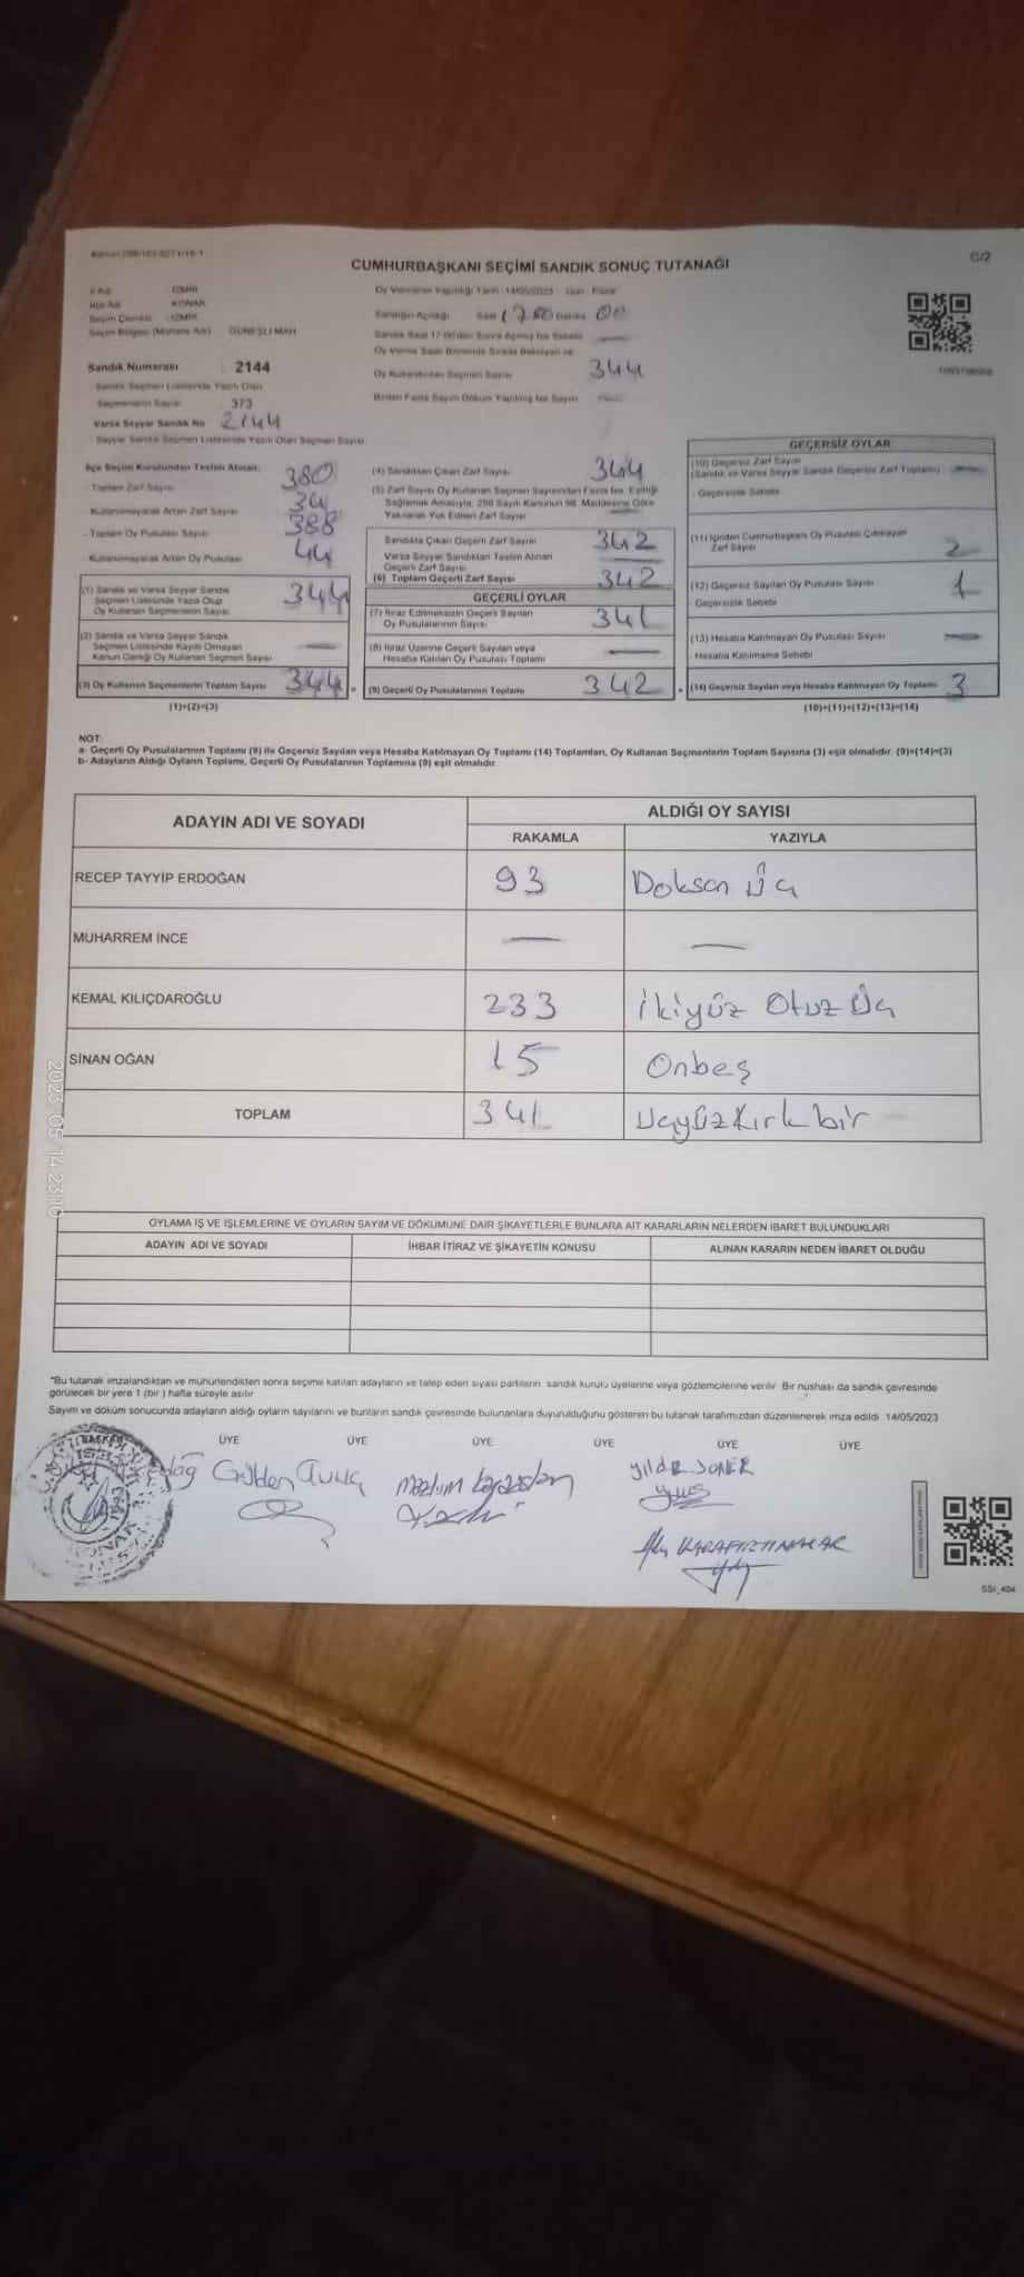 CUMHURBAŞKANI SEÇİMİ SANDIK SONUÇ TUTANAĞI
C/2
İZMİR
KONAK
Seçim Çevresi : İZMİR
GÜNEŞLİ MAH.
Oy Vermenin Yapıldığı Tarih : 14/05/2023 Gün : Pazar
Sandığın Açıldığı Saat 17:00 Dakika 00
Sandık Numarası : 2144
Sandık Seçmen Listesinde Yazılı Olan
Seçmenlerin Sayısı : 373
Varsa Seyyar Sandık No : 2144
Seyyar Sandık Seçmen Listesinde Yazılı Olan Seçmen Sayısı
Oy Kullandırılan Seçmen Sayısı 344
Birden Fazla Sayım Döküm Yapılmış İse Sayısı
İlçe Seçim Kurulundan Teslim Alınan;
Toplam Zarf Sayısı 380
Kullanılmayarak Artan Zarf Sayısı
Toplam Oy Pusulası Sayısı 388
Kullanılmayarak Artan Oy Pusulası 44
(1) Sandık ve Varsa Seyyar Sandık
Seçmen Listesinde Yazılı Olup
Oy Kullanan Seçmenlerin Sayısı 344
(2) Sandık ve Varsa Seyyar Sandık
Seçmen Listesinde Kaydı Olmayan
Kanun Gereği Oy Kullanan Seçmen Sayısı —
(3) Oy Kullanan Seçmenlerin Toplam Sayısı 344 =
(1)+(2)=(3)
(4) Sandıktan Çıkan Zarf Sayısı 344
(5) Zarf Sayısı Oy Kullanan Seçmen Sayısından Fazla İse, Eşitliği
Sağlamak Amacıyla, 298 Sayılı Kanunun 98. Maddesine Göre
Yakılarak Yok Edilen Zarf Sayısı
Sandıkta Çıkan Geçerli Zarf Sayısı 342
Varsa Seyyar Sandıktan Teslim Alınan
Geçerli Zarf Sayısı —
(6) Toplam Geçerli Zarf Sayısı 342
GEÇERLİ OYLAR
(7) İtiraz Edilmeksizin Geçerli Sayılan
Oy Pusulalarının Sayısı 341
(8) İtiraz Üzerine Geçerli Sayılan veya
Hesaba Katılan Oy Pusulası Toplamı —
(9) Geçerli Oy Pusulalarının Toplamı 342 +
GEÇERSİZ OYLAR
(10) Geçersiz Zarf Sayısı
(Sandık ve Varsa Seyyar Sandık Geçersiz Zarf Toplamı) —
Geçersizlik Sebebi
(11) İçinden Cumhurbaşkanı Oy Pusulası Çıkmayan
Zarf Sayısı 2
(12) Geçersiz Sayılan Oy Pusulası Sayısı 1
Geçersizlik Sebebi
(13) Hesaba Katılmayan Oy Pusulası Sayısı —
Hesaba Katılmama Sebebi
(14) Geçersiz Sayılan veya Hesaba Katılmayan Oy Toplamı 3
(10)+(11)+(12)+(13)=(14)
NOT:
a- Geçerli Oy Pusulalarının Toplamı (9) ile Geçersiz Sayılan veya Hesaba Katılmayan Oy Toplamı (14) Toplamları, Oy Kullanan Seçmenlerin Toplam Sayısına (3) eşit olmalıdır. (9)+(14)=(3)
b- Adayların Aldığı Oyların Toplamı, Geçerli Oy Pusulalarının Toplamına (9) eşit olmalıdır.
ADAYIN ADI VE SOYADI ALDIĞI OY SAYISI
RAKAMLA YAZIYLA
RECEP TAYYİP ERDOĞAN 93 Doksan Üç
MUHARREM İNCE — —
KEMAL KILIÇDAROĞLU 233 İkiyüz Otuz Üç
SİNAN OĞAN 15 Onbeş
TOPLAM 341 Üçyüzkırkbir
2023 05 14 23:10
OYLAMA İŞ VE İŞLEMLERİNE VE OYLARIN SAYIM VE DÖKÜMÜNE DAİR ŞİKAYETLERLE BUNLARA AİT KARARLARIN NELERDEN İBARET BULUNDUKLARI
ADAYIN ADI VE SOYADI İHBAR İTİRAZ VE ŞİKAYETİN KONUSU ALINAN KARARIN NEDEN İBARET OLDUĞU
"Bu tutanak imzalandıktan ve mühürlendikten sonra seçime katılan adayların ve talep eden siyasi partilerin sandık kurulu üyelerine veya gözlemcilerine verilir. Bir nushası da sandık çevresinde
görülecek bir yere 1 (bir ) hafta süreyle asılır.
Sayım ve döküm sonucunda adayların aldığı oyların sayılarını ve bunların sandık çevresinde bulunanlara duyurulduğunu gösteren bu tutanak tarafımızdan düzenlenerek imza edildi. 14/05/2023
ÜYE ÜYE ÜYE ÜYE ÜYE ÜYE
SSI_404